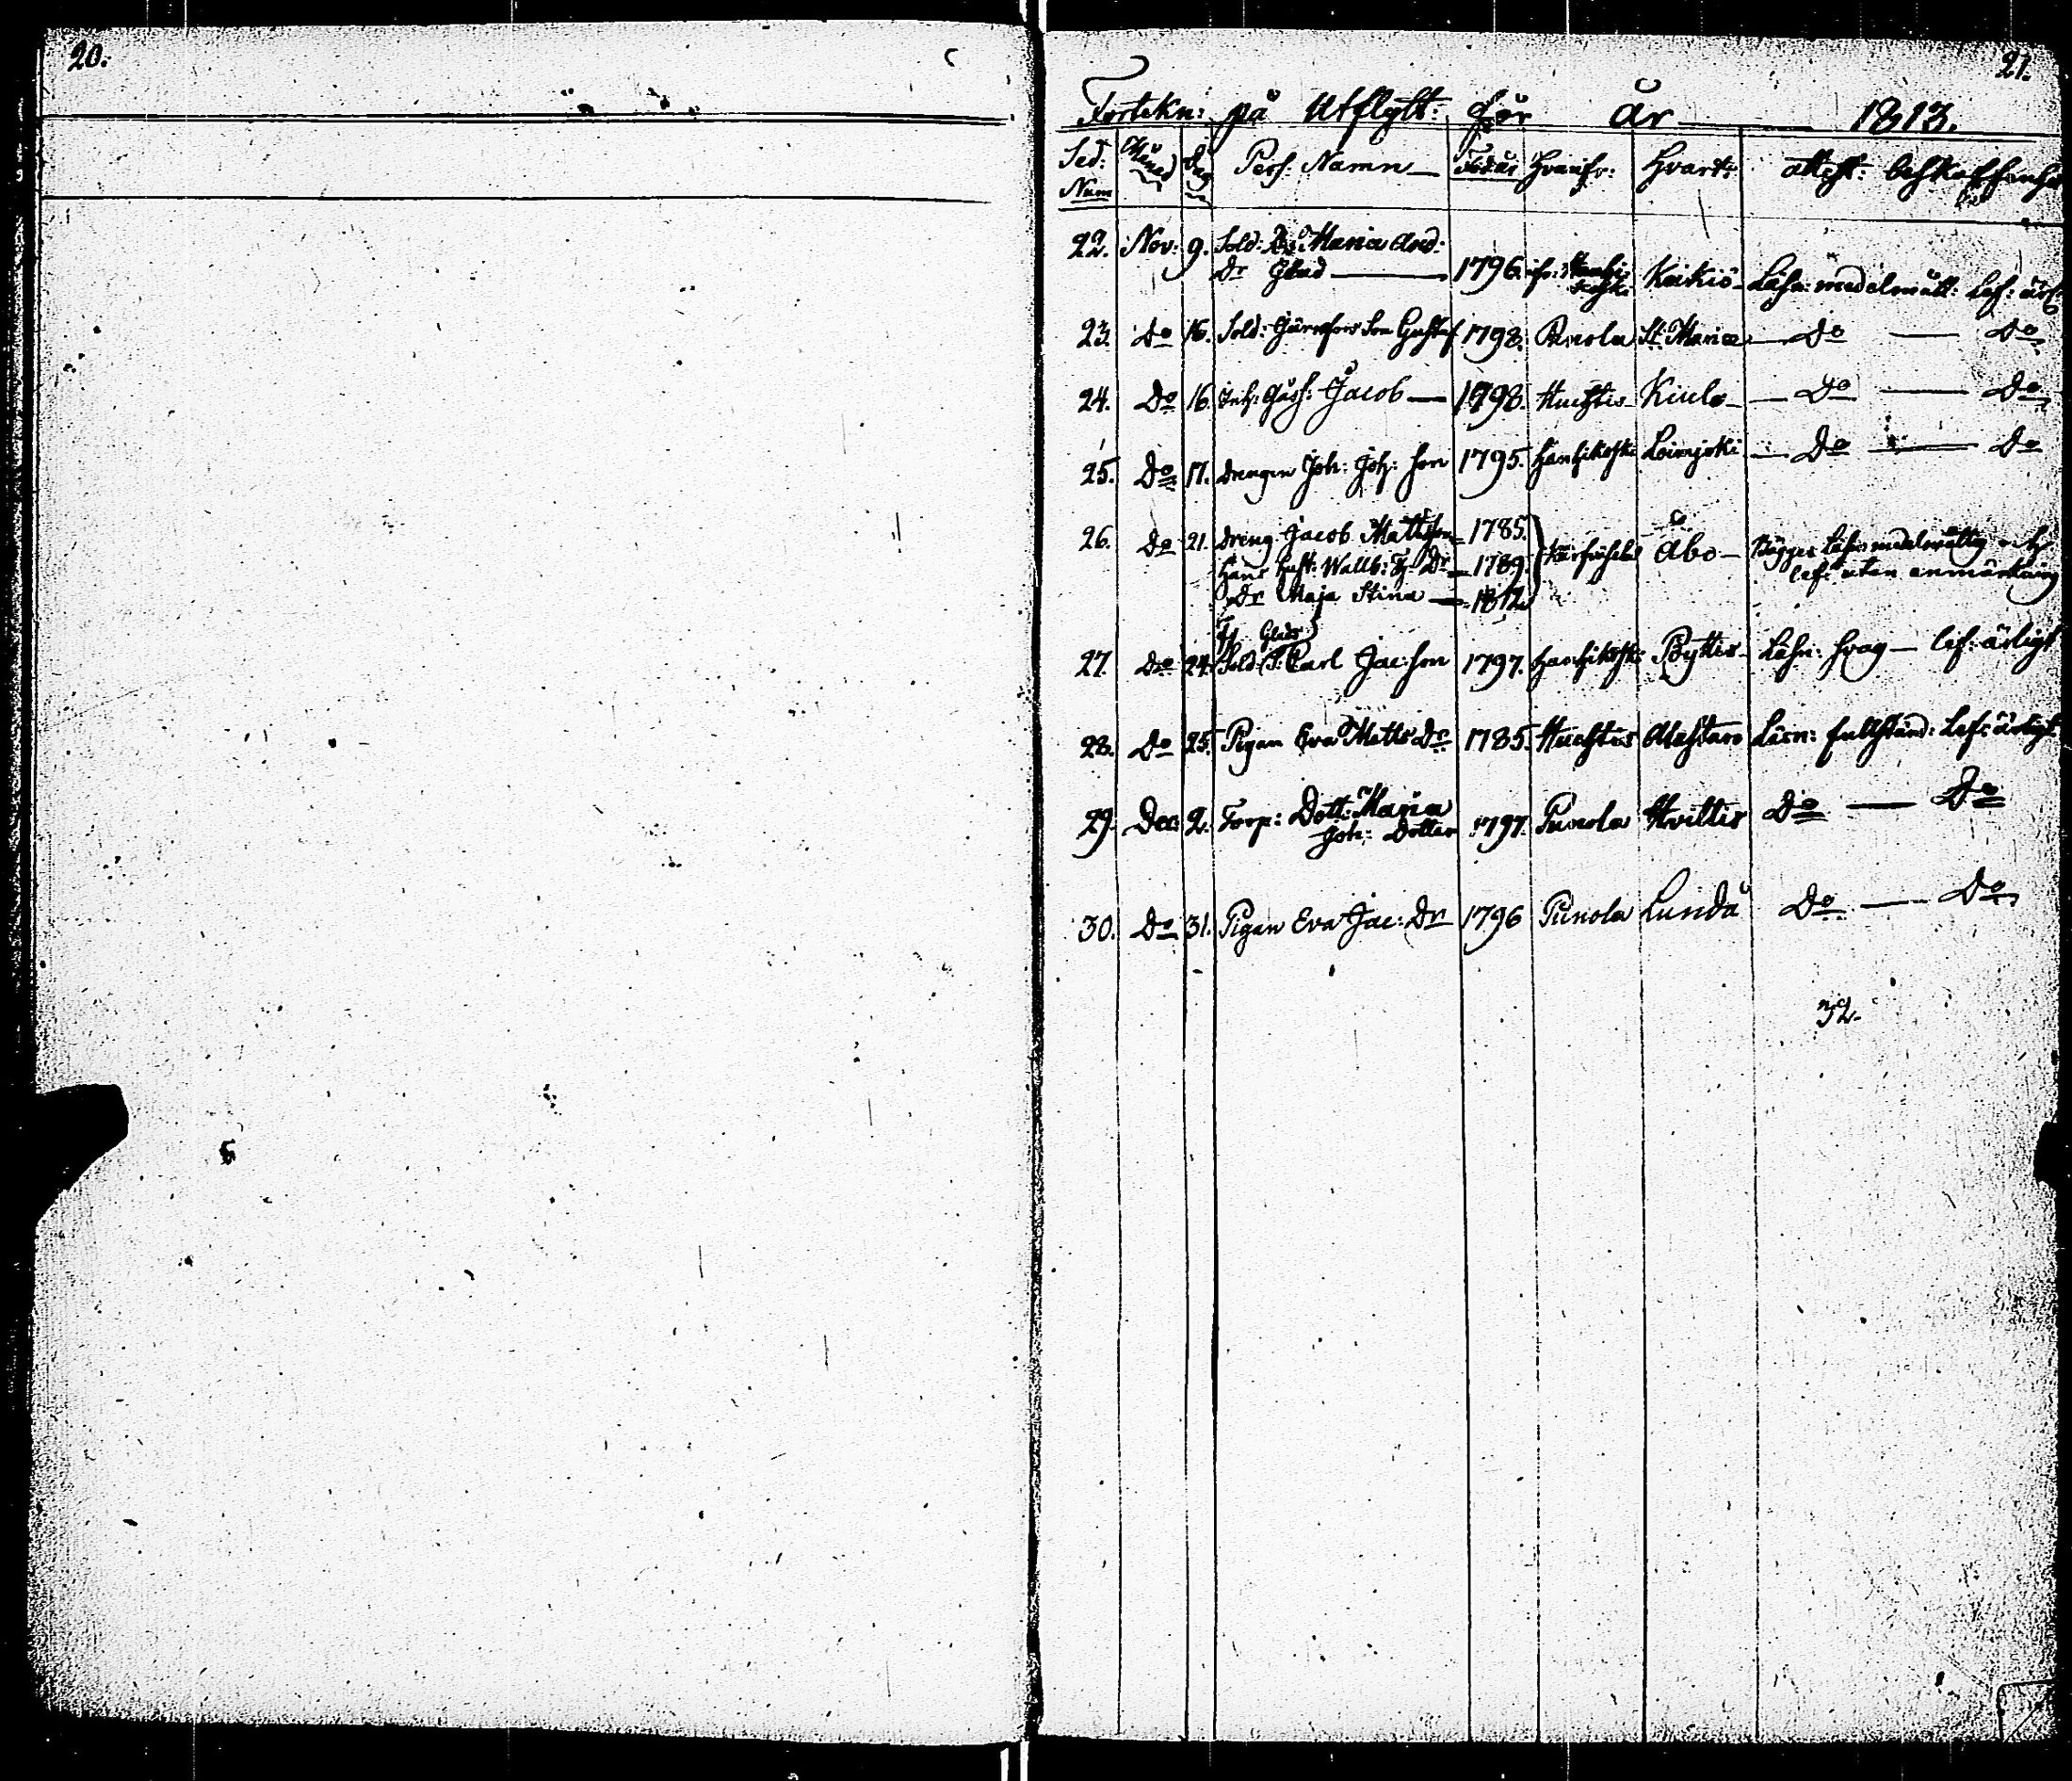 20.
21.
Förtekn: på Utflytt: för år 1813.
Sed: Num Månad Dag Pers: Namn Föd: år Hvarifr: Hvart: Attest: beskaffenhet
22. Nov: 9. Sold: Maria And:
Dr Glad 1796. Keikiö Läsn: medelmått: Lef: ärl:
23. Do 16. Sold: Son Gustaf 1798. Punola St. Marie Do Do
24. Do 16. Inh: Goss: Jacob 1798. Huchtis Kiulo Do Do
25. Do 17. Drengen Joh: Joh: son 1795. Hanhikoski Loimjoki Do Do
26. Do 21. Dreng Jacob Mattsson 1785. Åbo Bägges Läsn medelmåttig och
Hans Hust: Wallb: Dr 1789. lef: utan anmärkning
Dr Maja Stina 1812.
Glads
27. Do 24. Sold: Carl Jac: son 1797. Hanhikoski Pöyttis Läsn: svag lef: ärligt
28. Do 25. Pigan Eva Matts Dr 1785. Huchtis Alastaro Läsn: fullständ: Lef: ärligt
29. Dec: 2. Torp: Dott: Maria
Joh: Dotter 1797. Punola Hvittis Do Do
30. Do 31. Pigan Eva Jac: Dr 1796 Punola Lundå Do Do
32.